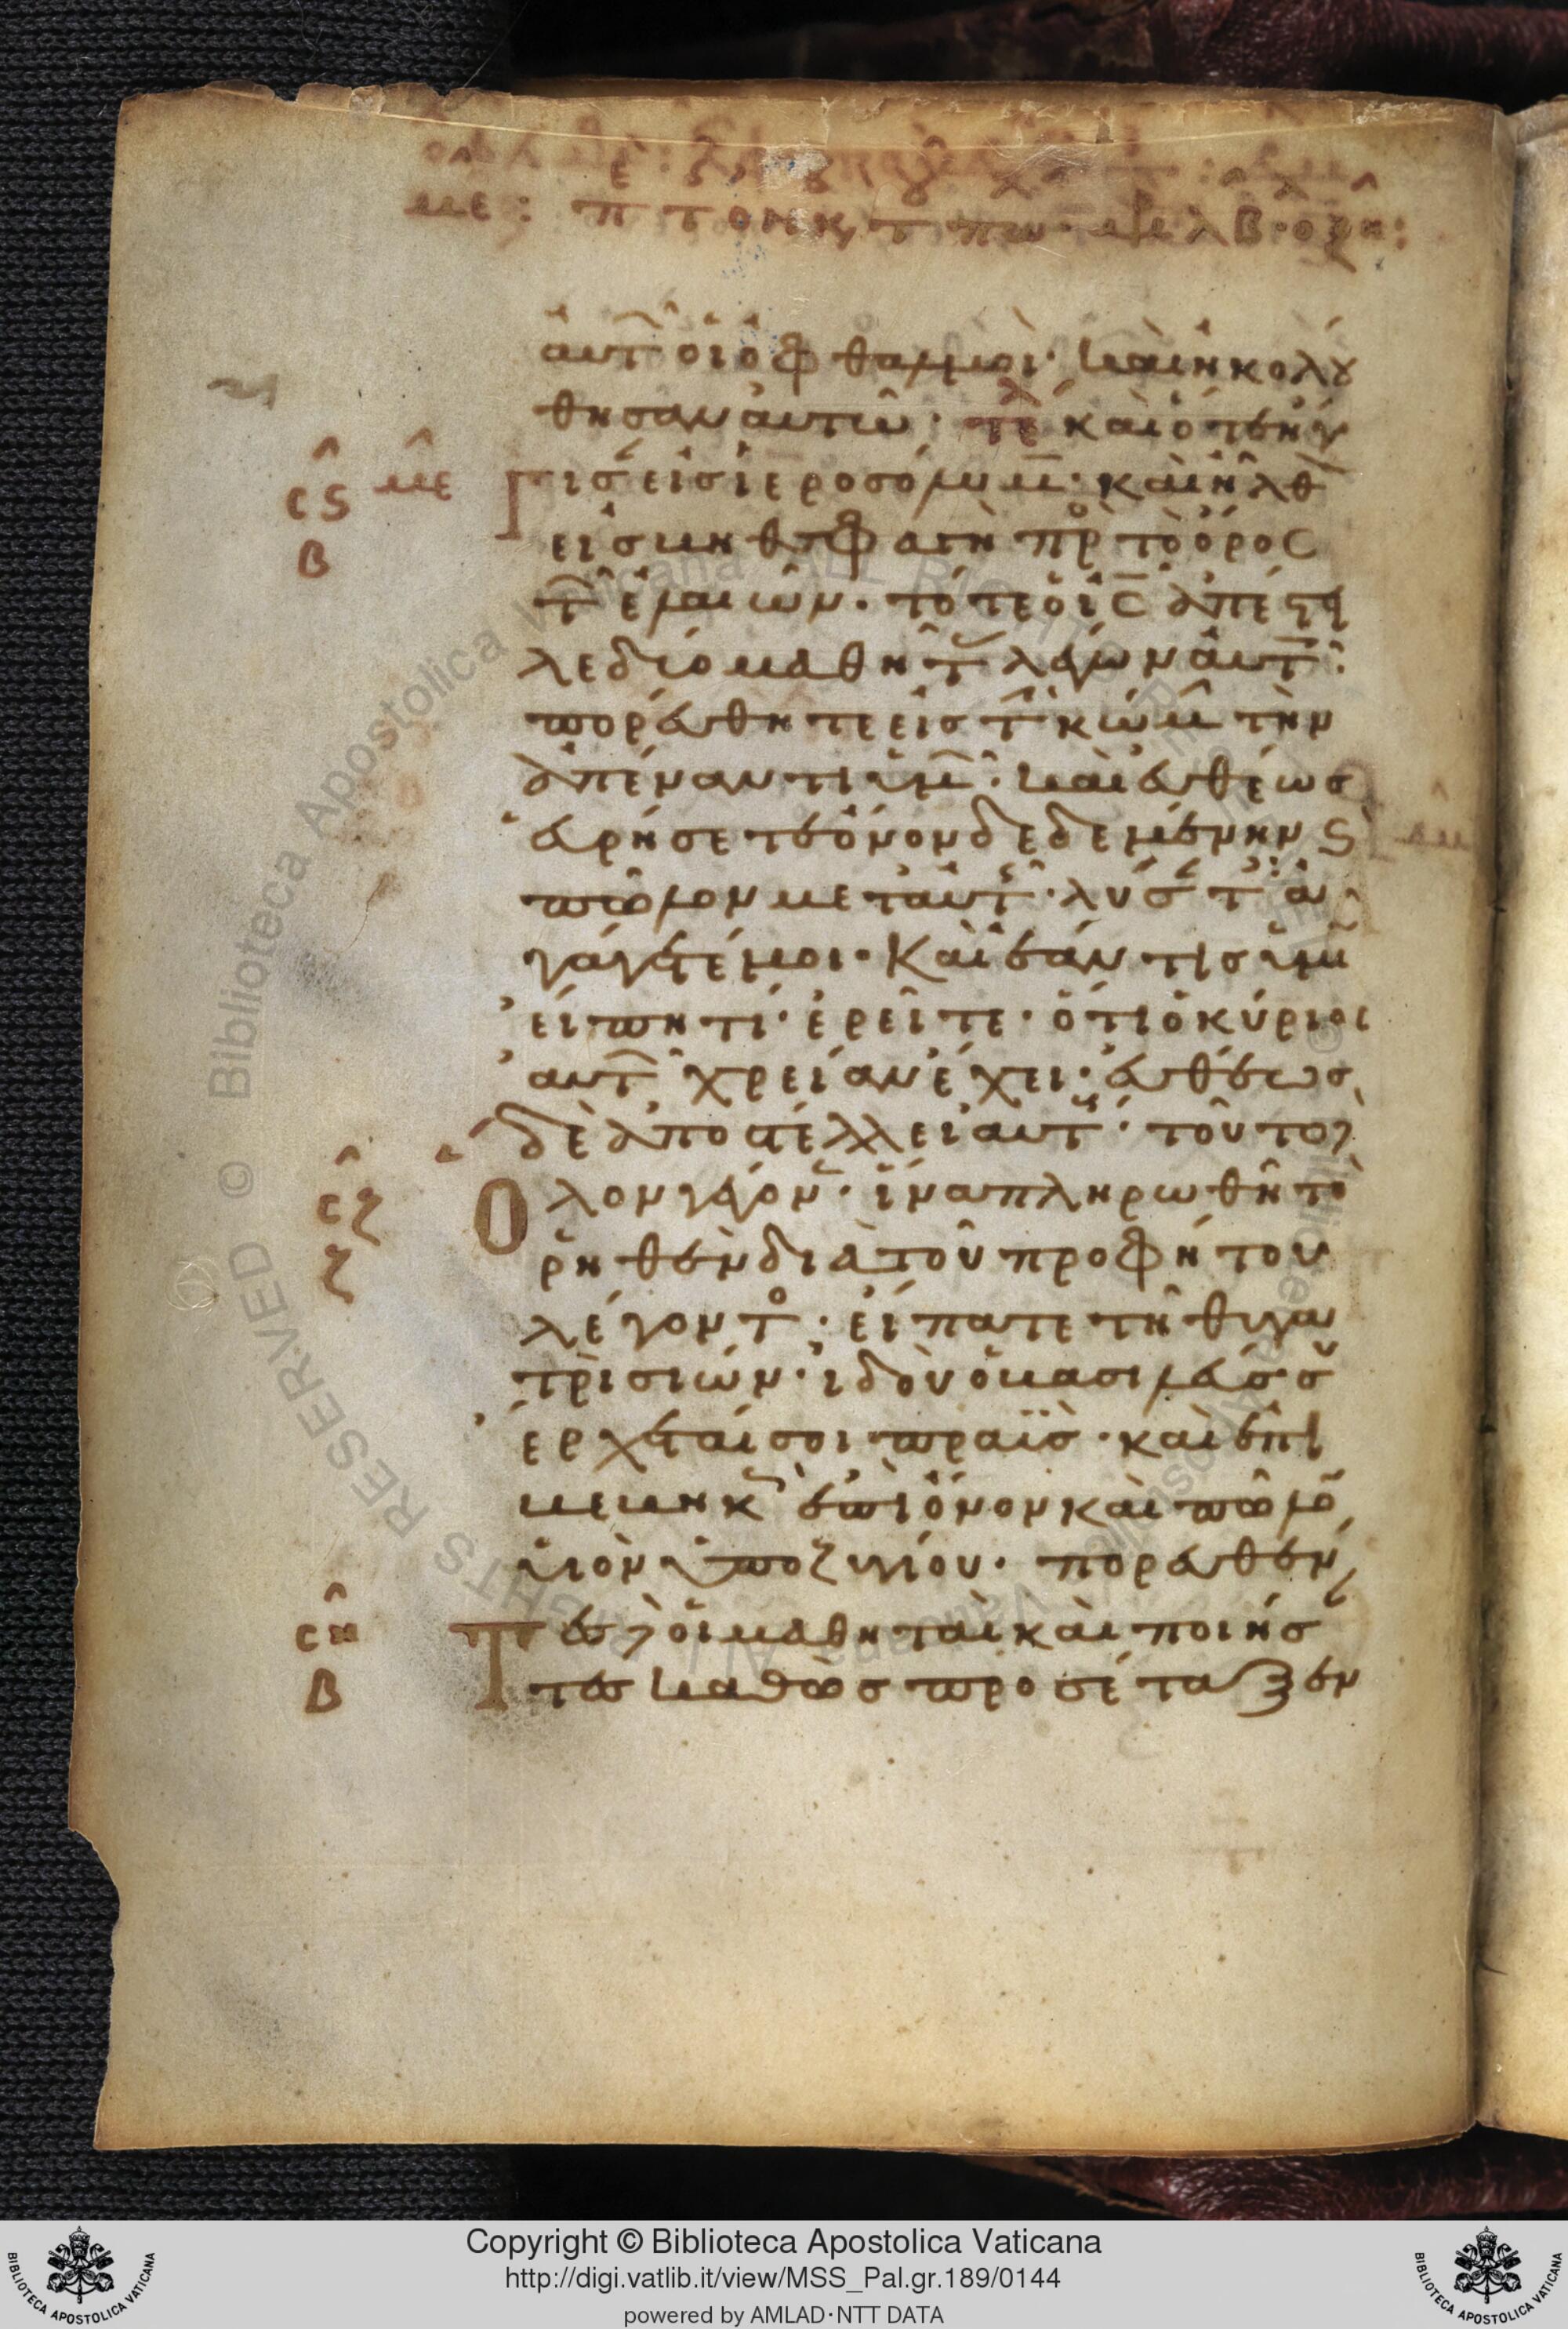 με: π τονκ τ πω
αὐτ οἱ ὀφθαλμοί· καὶ ἠκολȣ
θησαν αὐτῶ· τελ καὶ ὅτε ἤγ
σϛ με
Γισεν εἰς ἱεροσόλυμ· καὶ ἦλθ
β
εἰσ βηθσφαγὴ πρ τὸ ὄροσ
τ ἐλαιῶν· τότε ὁ ις ἀπέστει
λε δύο μαθητ λέγων αὐτ·
πορεύθητε εἰς τ κώμ τὴν
ἀπέναντι ὑμ· καὶ εὐθέως
εὑρήσετε ὄνον δεδεμένην ϛ
πῶλον μετ αὐτ· λύσ τ ἀ
γάγετέ μοι· καὶ ἐάν τις ὑμ
εἴπη τί· ἐρεῖτε· ὅτι ὁ κύριοσ
αὐτ χρείαν ἔχει· εὐθέως
δὲ ἀποστέλλει αὐτ· τοῦτο δ
σζ
Ολον γέγον· ἵνα πληρωθῆ τὸ
ζ
ρηθὲν διὰ τοῦ προφήτου
λέγοντ· εἴπατε τῆ θυγα
τρὶ σιών· ἰδοὺ ὁ βασιλεύς σ
ἔρχεταί σοι πραῢσ· καὶ ἐπι
βεβηκ ἐπὶ ὄνον καὶ πῶλο
υἱὸν ὑποζυγίου· πορευθέν
ση
Τεσ δ οἱ μαθηταὶ καὶ ποιήσ
β
τεσ καθὼσ προσέταξεν
Copyright © Biblioteca Apostolica Vaticana
http://digi.vatlib.it/view/MSS_Pal.gr.189/0144
powered by AMLAD·NTT DATA
BIBLIOTECA APOSTOLICA VATICANA
BIBLIOTECA APOSTOLICA VATICANA